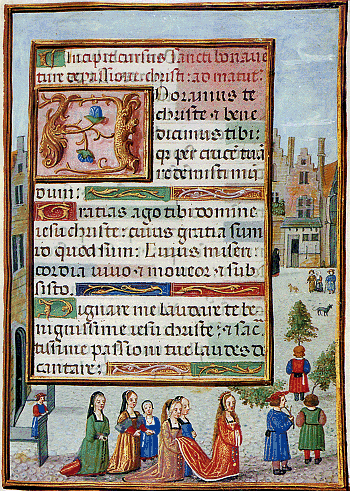 Incipit cursus sancti bonave
ture de passione christi: ad matut:
Adoramus te
christe & bene
dicimus tibi:
q per crucem tuā
redemisti mū
dum:
Gratias ago tibi domine
iesu christe: cuius gratia sum
id quod sum: Cuius miseri
cordia vivo & moveor & sub
sisto.
Dignare me laudare te be
nignissime iesu christe: & sāc
tissime passioni tue laudes de
cantare: